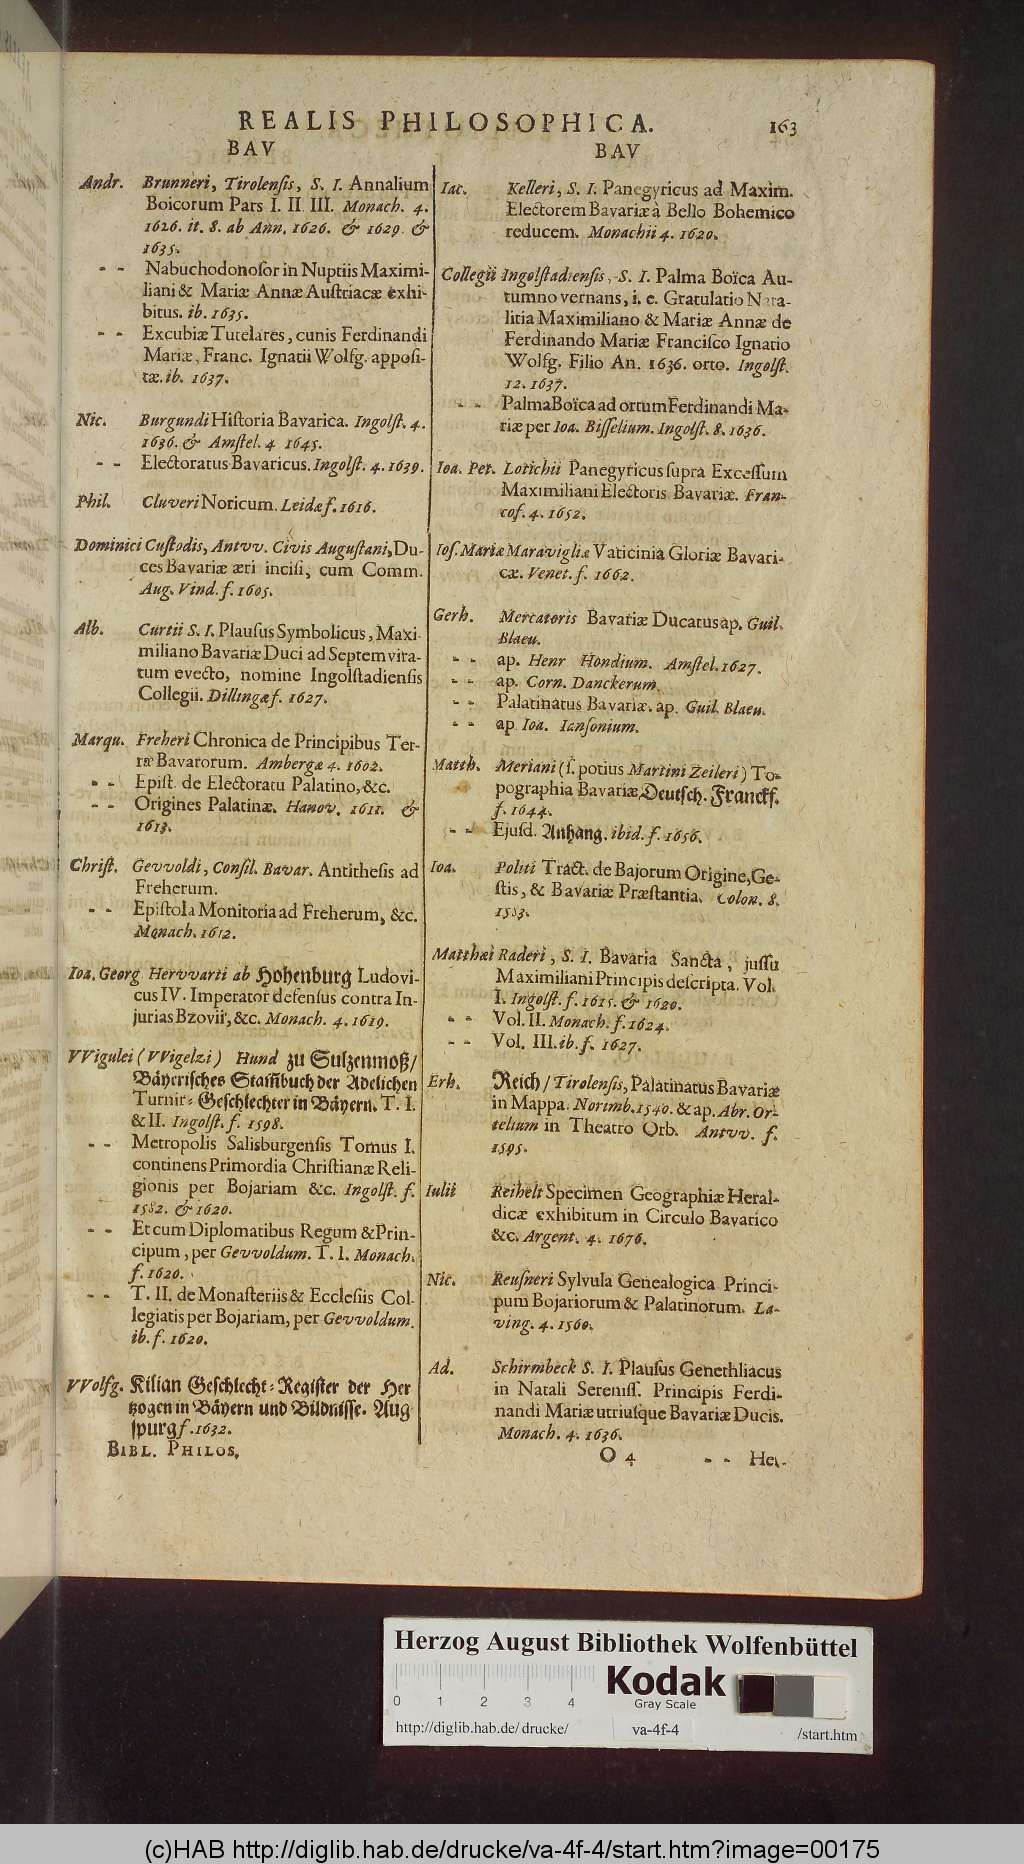 REALIS PHILOSOPHICA. 163
BAV
Andr. Brunneri, Tirolensis, S. I. Annalium
Boicorum Pars I. II III. Monach. 4.
1626. it. 8. ab Ann. 1626. & 1629. &
1635.
- - Nabuchodonosor in Nuptiis Maximi-
liani & Mariæ Annæ Austriacæ exhi-
bitus. ib. 1635.
- - Excubiæ Tutelares, cunis Ferdinandi
Mariæ, Franc. Ignatii Wolfg. apposi-
tæ. ib. 1637.
Nic. Burgundi Historia Bavarica. Ingolst. 4.
1636. & Amstel. 4 1645.
- - Electoratus Bavaricus. Ingolst. 4. 1639.
Phil. Cluveri Noricum. Leidæ f. 1616.
Dominici Custodis, Antvv. Civis Augustani, Du-
ces Bavariæ æri incisi, cum Comm.
Aug. Vind. f. 1605.
Alb. Curtii S. I. Plausus Symbolicus, Maxi-
miliano Bavariæ Duci ad Septemvira-
tum evecto, nomine Ingolstadiensis
Collegii. Dillingæ f. 1627.
Marqu. Freheri Chronica de Principibus Ter-
ræ Bavarorum. Ambergæ 4. 1602.
- - Epist. de Electoratu Palatino, &c.
- - Origines Palatinæ. Hanov. 1611. &
1613.
Christ. Gevvoldi, Consil. Bavar. Antithesis ad
Freherum.
- - Epistola Monitoria ad Freherum, &c.
Monach. 1612.
Ioa. Georg Hervvarti ab Hohenburg Ludovi-
cus IV. Imperator defensus contra In-
jurias Bzovii, &c. Monach. 4. 1619.
VVigulei (VVigelzi) Hund zu Sulzenmoß/
Bäyerisches Stam̃buch der Adelichen
Turnir-Geschlechter in Bäyern. T. I.
& II. Ingolst. f. 1598.
- - Metropolis Salisburgensis Tomus I.
continens Primordia Christianæ Reli-
gionis per Bojariam &c. Ingolst. f.
1582. & 1620.
- - Et cum Diplomatibus Regum & Prin-
cipum, per Gevvoldum. T. I. Monach.
f. 1620.
- - T. II. de Monasteriis & Ecclesiis Col-
legiatis per Bojariam, per Gevvoldum.
ib. f. 1620.
VVolfg. Kilian Geschlecht-Register der Her
tzogen in Bäyern und Bildnisse. Aug
spurg f. 1632.
BIBL. PHILOS.
BAV
Iac. Kelleri, S. I. Panegyricus ad Maxim.
Electorem Bavariæ à Bello Bohemico
reducem. Monachii 4. 1620.
Collegii Ingolstadiensis, S. I. Palma Boïca Au-
tumno vernans, i. e. Gratulatio Nata-
litia Maximiliano & Mariæ Annæ de
Ferdinando Mariæ Francisco Ignatio
Wolfg. Filio An. 1636. orto. Ingolst.
12. 1637.
- - Palma Boïca ad ortum Ferdinandi Ma-
riæ per Ioa. Bisselium. Ingolst. 8. 1636.
Ioa. Pet. Lotichii Panegyricus supra Excessum
Maximiliani Electoris Bavariæ. Fran-
cof. 4. 1652.
Ios. Mariæ Maravigliæ Vaticinia Gloriæ Bavari-
cæ. Venet. f. 1662.
Gerh. Mercatoris Bavariæ Ducatus ap. Guil.
Blaeu.
- - ap. Henr Hondium. Amstel. 1627.
- - ap. Corn. Danckerum.
- - Palatinatus Bavariæ. ap. Guil Blaeu.
- - ap. Ioa. Iansonium.
Matth. Meriani (s. potius Martini Zeileri) To-
pographia Bavariæ, Deutsch. Franckf.
f. 1644.
- - Ejusd. Anhang. ibid. f. 1656.
Ioa. Politi Tract. de Bajorum Origine, Ge-
stis, & Bavariæ Præstantia. Colon. 8.
1583.
Matthæi Raderi, S. I. Bavaria Sancta, jussu
Maximiliani Principis descripta. Vol.
I. Ingolst. f. 1615. & 1620.
- - Vol. II. Monach. f. 1624.
- - Vol. III. ib. f. 1627.
Erh. Reich / Tirolensis, Palatinatus Bavariæ
in Mappa. Norimb. 1540. & ap. Abr. Or-
telium in Theatro Orb. Antvv. f.
1595.
Iulii Reihelt Specimen Geographiæ Heral-
dicæ exhibitum in Circulo Bavarico
&c. Argent. 4. 1676.
Nic. Reusneri Sylvula Genealogica Princi-
pum Bojariorum & Palatinorum. La-
ving. 4. 1560.
Ad. Schirmbeck S. I. Plausus Genethliacus
in Natali Sereniss. Principis Ferdi-
nandi Mariæ utriusque Bavariæ Ducis.
Monach. 4. 1636.
O 4 - - Hei-
Herzog August Bibliothek Wolfenbüttel
Kodak
Gray Scale
0 1 2 3 4
http://diglib.hab.de/drucke/ va-4f-4 /start.htm
(c)HAB http://diglib.hab.de/drucke/va-4f-4/start.htm?image=00175